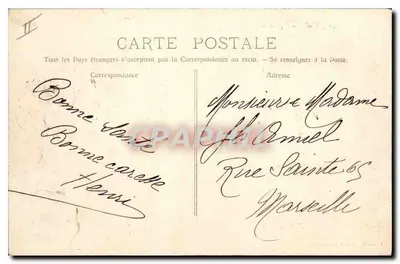 II
CARTE POSTALE
Tous les Pays étrangers n'acceptent pas la Correspondance au recto. - Se renseigner à la Poste.
Correspondance
Adresse
Bonne Santé
Bonne caresse
Henri
Monsieur e Madame
Amiel
Rue Sainte 65
Marseille